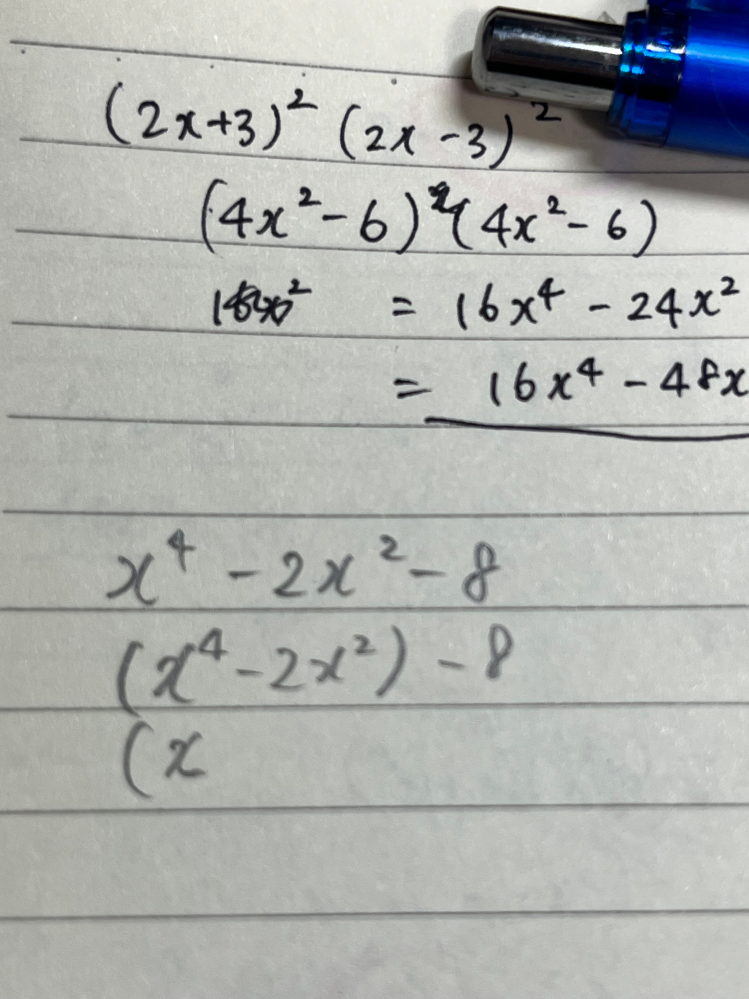 (2x+3)² (2x-3)²
(4x²-6) (4x²-6)
= 16x⁴ - 24x²
= 16x⁴ - 48x
x⁴ - 2x² - 8
(x⁴-2x²) - 8
(x